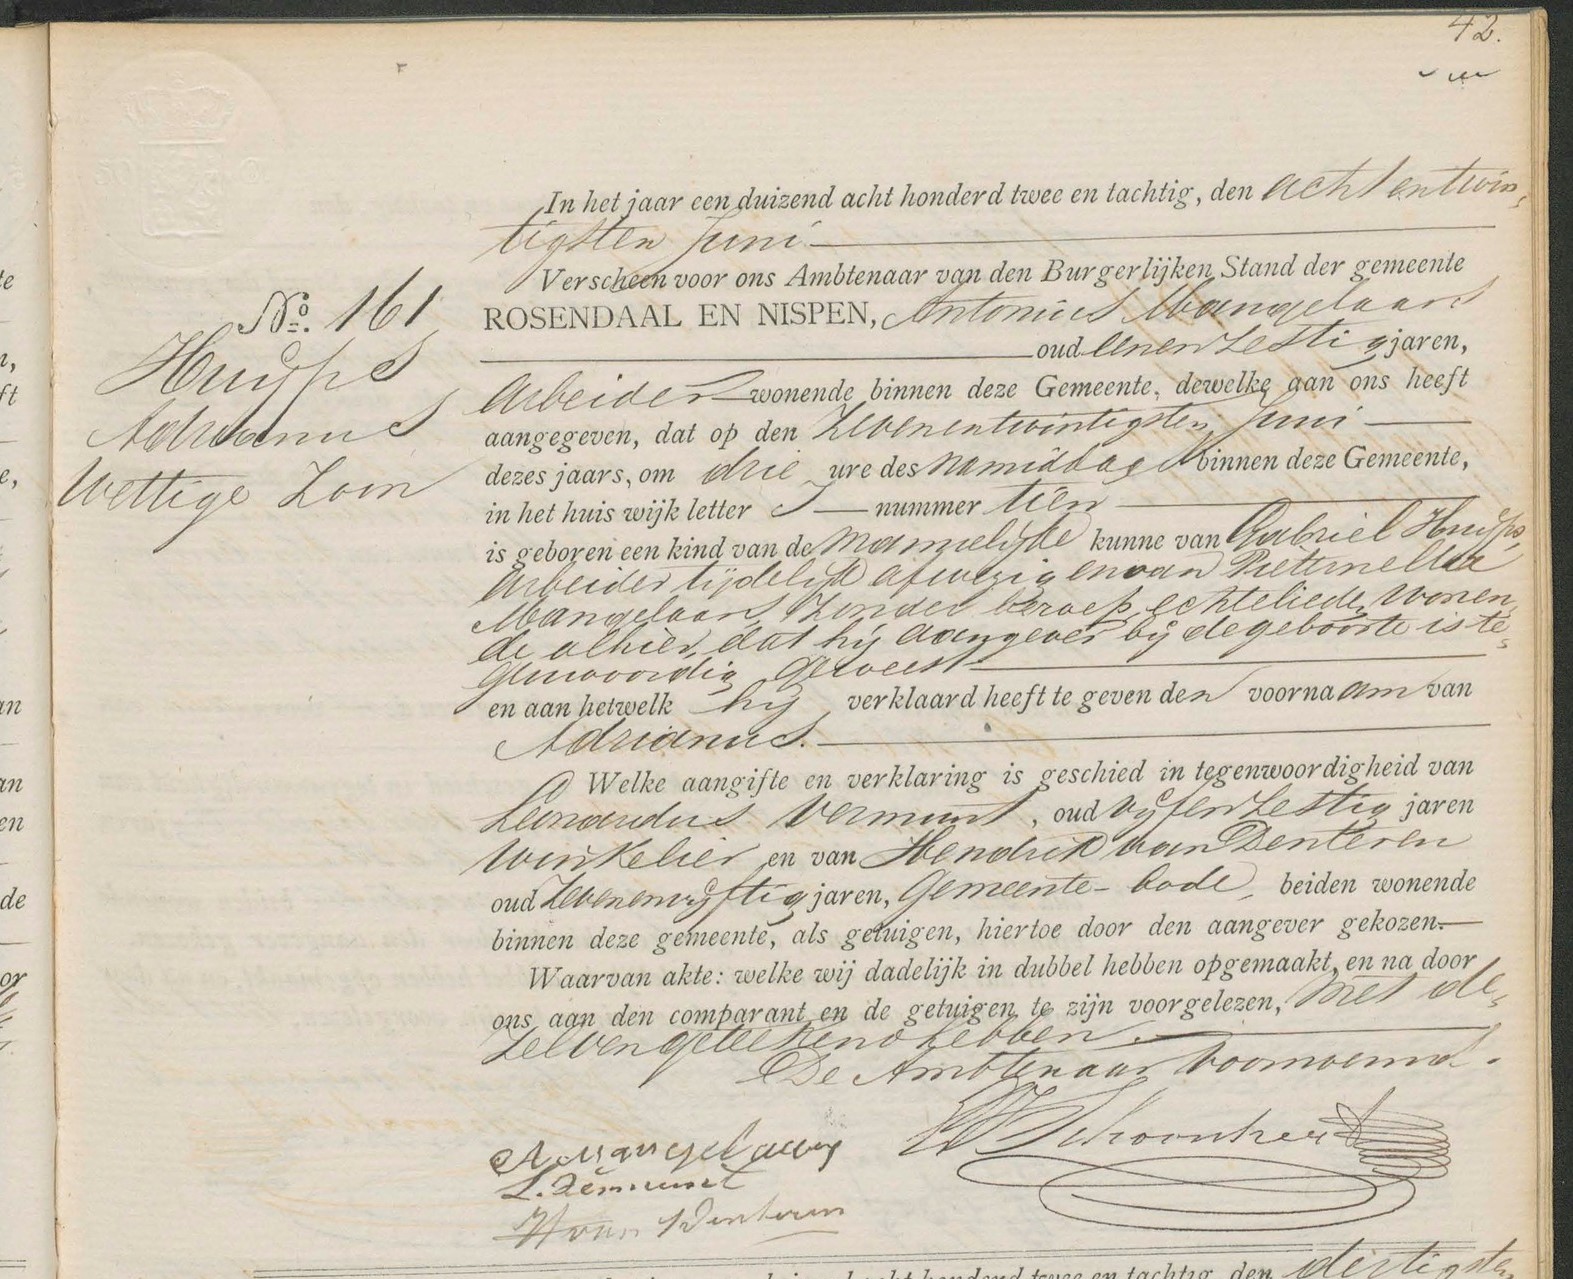 42.
No. 161
Huijps
Adrianus
Wettige Zoon
In het jaar een duizend acht honderd twee en tachtig, den achtentwin-
tigsten Juni
Verscheen voor ons Ambtenaar van den Burgerlijken Stand der gemeente
ROSENDAAL EN NISPEN, Antonius Mangelaars
oud eenenzestig jaren,
Arbeider wonende binnen deze Gemeente, dewelke aan ons heeft
aangegeven, dat op den zevenentwintigsten Juni
dezes jaars, om drie ure des namiddags binnen deze Gemeente,
in het huis wijk letter S nummer tien
is geboren een kind van de mannelijke kunne van Gabriel Huijps,
Arbeider tijdelijk afwezig en van Pieternella
Mangelaars, zonder beroep, echtelieden, wonen-
de alhier, dat hij aangever bij de geboorte is te-
genwoordig geweest
en aan hetwelk hij verklaard heeft te geven den voornaam van
Adrianus.
Welke aangifte en verklaring is geschied in tegenwoordigheid van
Leonardus Vermunt, oud vijfenzestig jaren
winkelier en van Hendrik van Denteren
oud zevenenvijftig jaren, Gemeente-bode, beiden wonende
binnen deze gemeente, als getuigen, hiertoe door den aangever gekozen.
Waarvan akte: welke wij dadelijk in dubbel hebben opgemaakt, en na door
ons aan den comparant en de getuigen te zijn voorgelezen, met de-
zelven geteekend hebben.
De Ambtenaar voornoemd.
A. Mangelaars
L. Vermunt
H van Denteren
twee en tachtig, den dertigsten